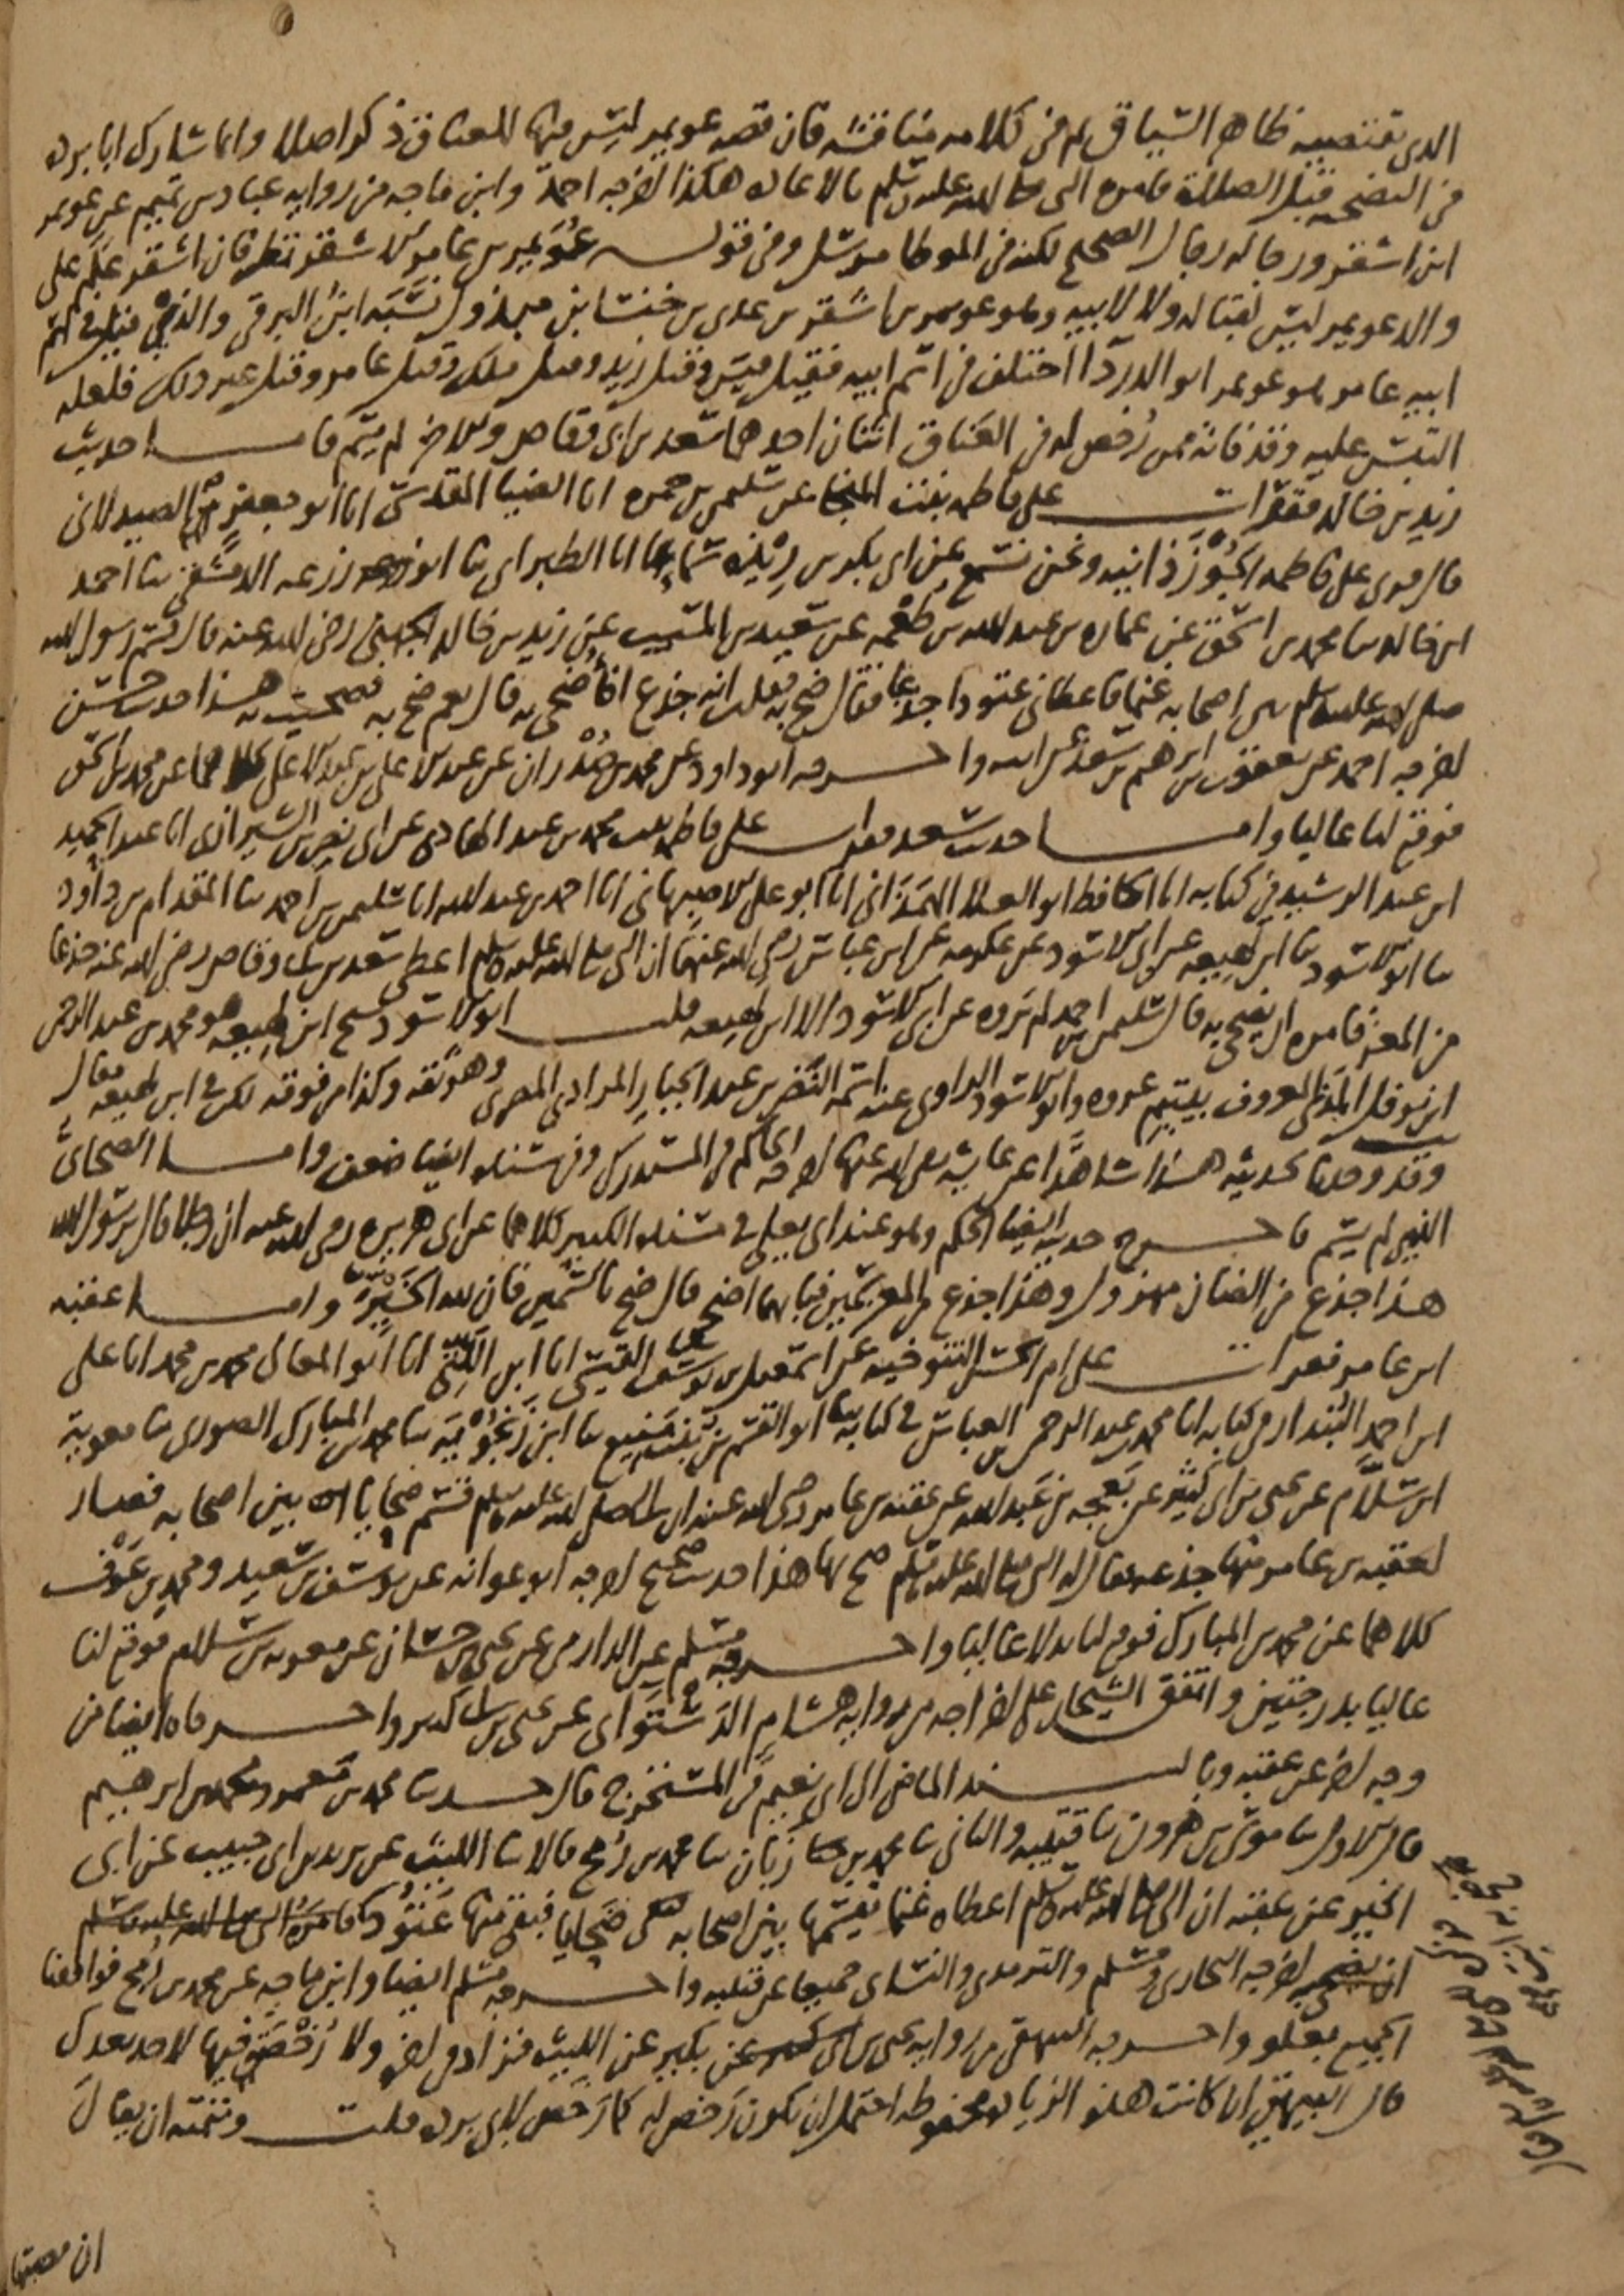 الذي يقتضيه ظاهر السياق ثم في كلامه مناقشة فان قصة عويمر ليس فيها للعناق ذكر اصلا وانما شارك ابا بردة
في التضحية قبل الصلاة فامره النبي صلى الله عليه وسلم بالاعادة هكذا اخرجه احمد وابن ماجه من رواية عباد بن تميم عن عويمر
ابن اشقر ورجاله رجال الصحيح لكنه في الموطا مرسل وفي قوله عويمر بن عامر الاشقر نظر فان اشقر علم على
والد عويمر ليس لقبا له ولا لابيه وهو عويمر بن اشقر بن عدي بن خنسا بن مبذول نسبه ابن البرقي والذي قيل في اسم
ابيه عامر هو عويمر ابو الدردا اختلف في اسم ابيه فقيل قيس وقيل زيد وقيل ملك وقيل عامر وقيل غير ذلك فلعله
التبس عليه وقد فاته ممن رخص له في العناق اثنان احدهما سعد بن ابي وقاص والاخر لم يسم فاما حديث
زيد بن خالد فقرات على فاطمة بنت المنجا عن سليمن بن حمزة انا الضيا المقدسي انا ابو جعفر الصيدلاني
قال قرئ على فاطمة الجوزذانية ونحن نسمع عن ابي بكر بن ريذة سماعا انا الطبراني ثنا ابو زرعة الدمشقي ثنا احمد
ابن خالد ثنا محمد بن اسحق عن عمارة بن عبد الله بن طعمة عن سعيد بن المسيب عن زيد بن خالد الجهني رضي الله عنه قال قسم رسول الله
صلى الله عليه وسلم في اصحابه غنما فاعطاني عتودا جذعا فقال ضح به فقلت انه جذع افاضحي به قال نعم ضح به فضحيت به هذا حديث حسن
اخرجه احمد عن يعقوب بن ابرهيم بن سعد عن ابيه واخرجه ابو داود عن محمد بن صدران عن عبد الاعلى بن عبد الاعلى كلاهما عن محمد بن اسحق
فوقع لنا عاليا واما حديث سعد فقرات على فاطمة بنت محمد بن عبد الهادي عن ابي نصر بن الشيرازي انا عبد الحميد
ابن عبد الرشيد في كتابه انا الحافظ ابو العلا الهمذاني انا ابو علي الاصبهاني انا احمد بن عبد الله انا سليمن بن احمد ثنا المقدام بن داود
ثنا ابو الاسود ثنا ابن لهيعة عن ابي الاسود عن عكرمة عن ابن عباس رضي الله عنهما ان النبي صلى الله عليه وسلم اعطى سعد بن ابي وقاص رضي الله عنه جذعا
من المعز فامره ان يضحي به قال سليمن بن احمد لم يروه عن ابي الاسود الا ابن لهيعة قلت ابو الاسود شيخ ابن لهيعة هو محمد بن عبد الرحمن
ابن نوفل المدني المعروف بيتيم عروة وابو الاسود الراوي عنه اسمه النضر بن عبد الجبار المرادي المصري وهو ثقة وكذا من فوقه لكن في ابن لهيعة مقال
وقد وجدنا لحديثه هذا شاهدا عن عايشة رضي الله عنها اخرجه الحاكم في المستدرك وفي سنده ايضا ضعف واما الصحابي
الذي لم يسم فاخرج حديثه ايضا الحكم وهو عند ابي يعلى في مسنده الكبير كلاهما عن ابي هريرة رضي الله عنه ان رجلا قال يرسول الله
هذا جذع من الضان مهزول وهذا جذع من المعز سمين فبايهما اضحي قال ضح بالسمين فان لله الخير واما عقبة
ابن عامر فقرات على ام الحسن التنوخية عن اسمعيل بن يوسف القيسي انا ابن اللتي انا ابو المعالي محمد بن محمد انا علي
ابن احمد البندار في كتابه انا محمد بن عبد الرحمن بن العباس في كتابه ثنا ابو القسم بن بنت منيع ثنا ابن زنجويه ثنا محمد بن المبارك الصوري ثنا معوية
ابن سلام عن يحيى بن ابي كثير عن بعجة بن عبد الله عن عقبة بن عامر رضي الله عنه ان النبي صلى الله عليه وسلم قسم ضحايا بين اصحابه فصار
لعقبة بن عامر منها جذعة فقال له النبي صلى الله عليه وسلم ضح بها هذا حديث صحيح اخرجه ابو عوانة عن يوسف بن سعيد ومحمد بن عوف
كلاهما عن محمد بن المبارك فوقع لنا بدلا عاليا واخرجه مسلم عن الدارمي عن يحيى بن حسان عن معوية بن سلام فوقع لنا
عاليا بدرجتين واتفق الشيخان على اخراجه من رواية هشام الدستوائي عن يحيى بن ابي كثير واخرجاه ايضا من
وجه اخر عن عقبة وبالسند الماضي الى ابي نعيم في المستخرج قال حدثنا محمد بن معمر ومحمد بن ابرهيم
قال الاول ثنا موسى بن هرون ثنا قتيبة والثاني ثنا محمد بن زبان ثنا محمد بن رمح قالا ثنا الليث عن يزيد بن ابي حبيب عن ابي
الخير عن عقبة ان النبي صلى الله عليه وسلم اعطاه غنما يقسمها بين اصحابه ضحايا فبقي منها عتود فامره النبي صلى الله عليه وسلم
ان يضحي اخرجه البخاري ومسلم والترمذي والنسائي جميعا عن قتيبة واخرجه مسلم ايضا وابن ماجه عن محمد بن رمح فوافقنا
الجميع بعلو واخرجه البيهقي من رواية يحيى بن بكير عن الليث فزاد في اخره ولا رخصة فيها لاحد بعدك
قال البيهقي اذا كانت هذه الزيادة محفوظة احتمل ان يكون رخص له كما رخص لابي بردة قلت وتتمته ان يقال
ان صحتها